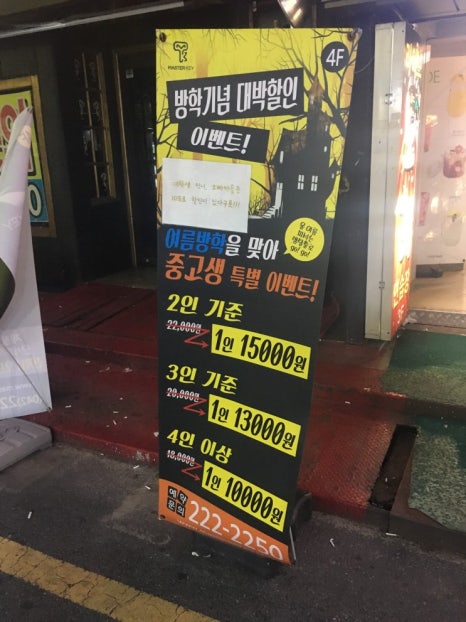 MASTER KEY
4F
방학기념 대박할인
이벤트!
여름방학을 맞아
중고생 특별 이벤트!
2인 기준
22,000원
1인 15000원
3인 기준
20,000원
1인 13000원
4인 이상
18,000원
1인 10000원
예약
문의
222-2250